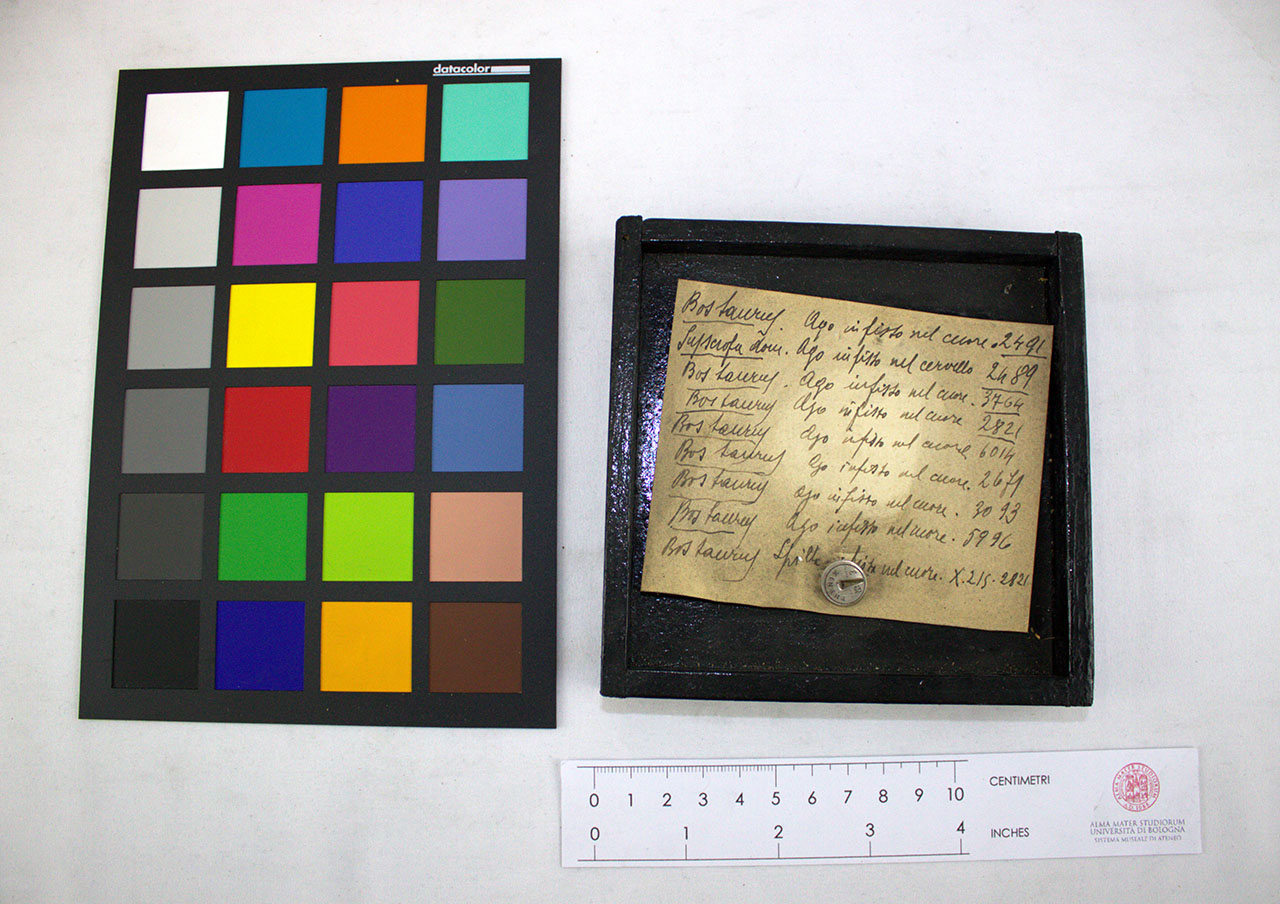 datacolor
Bos taurus. Ago infisso nel cuore. 2491
Sus scrofa dom. Ago infisso nel cervello 2489
Bos taurus. Ago infisso nel cuore. 3764
Bos taurus Ago infisso nel cuore 2821
Bos taurus Ago infisso nel cuore 6014
Bos taurus Ago infisso nel cuore. 2671
Bos taurus Ago infisso nel cuore. 3093
Bos taurus Ago infisso nel cuore. 5996
Bos taurus nel cuore. X.215-2821
0 1 2 3 4 5 6 7 8 9 10 CENTIMETRI
0 1 2 3 4 INCHES
ALMA MATER STUDIORUM
UNIVERSITÀ DI BOLOGNA
SISTEMA MUSEALE DI ATENEO